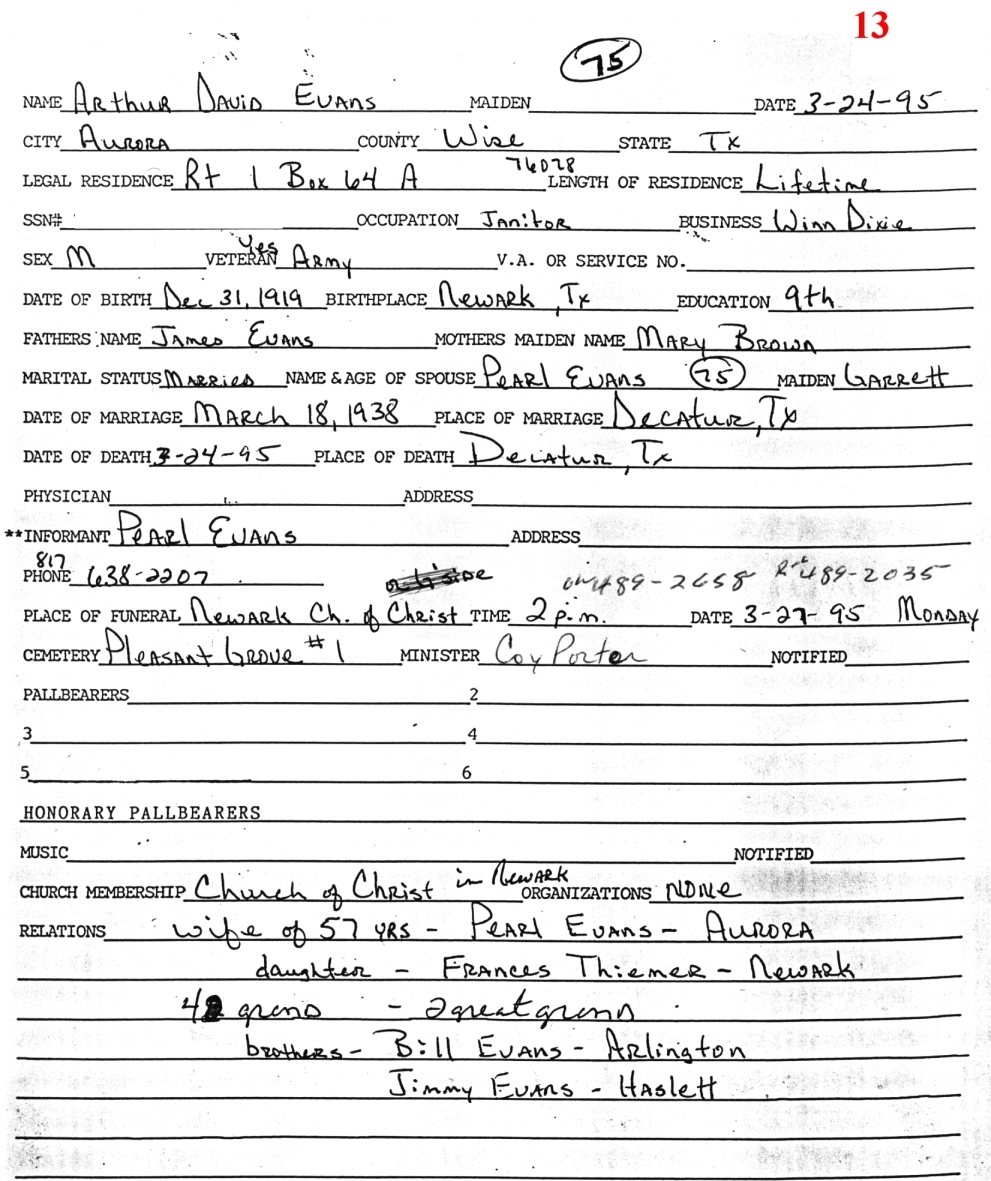 13
75
NAME Arthur David Evans MAIDEN DATE 3-24-95
CITY Aurora COUNTY Wise STATE Tx
LEGAL RESIDENCE Rt 1 Box 64 A 76078 LENGTH OF RESIDENCE Lifetime
SSN# OCCUPATION Janitor BUSINESS Winn Dixie
SEX M VETERAN Yes Army V.A. OR SERVICE NO.
DATE OF BIRTH Dec 31, 1919 BIRTHPLACE Newark, Tx EDUCATION 9th
FATHERS NAME James Evans MOTHERS MAIDEN NAME Mary Brown
MARITAL STATUS Married NAME & AGE OF SPOUSE Pearl Evans 75 MAIDEN Garrett
DATE OF MARRIAGE March 18, 1938 PLACE OF MARRIAGE Decatur, Tx
DATE OF DEATH 3-24-95 PLACE OF DEATH Decatur, Tx
PHYSICIAN ADDRESS
**INFORMANT Pearl Evans ADDRESS
817
PHONE 638-2207 489-2658 489-2035
PLACE OF FUNERAL Newark Ch. of Christ TIME 2 p.m. DATE 3-27-95 Monday
CEMETERY Pleasant Grove #1 MINISTER Coy Porter NOTIFIED
PALLBEARERS 2
3 4
5 6
HONORARY PALLBEARERS
MUSIC NOTIFIED
CHURCH MEMBERSHIP Church of Christ in Newark ORGANIZATIONS None
RELATIONS wife of 57 yrs - Pearl Evans - Aurora
daughter - Frances Thiemer - Newark
4 grand - 2 great grand
brothers - Bill Evans - Arlington
Jimmy Evans - Haslett